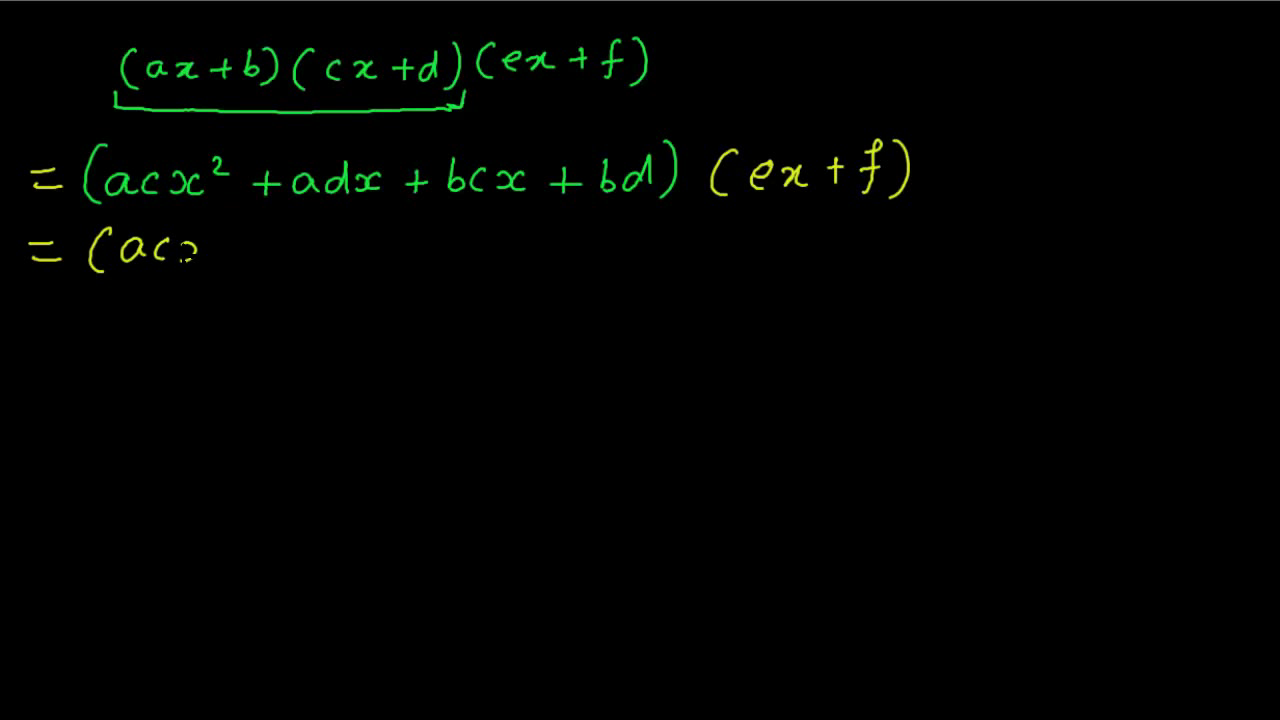 (ax+b)(cx+d)(ex+f)
= (acx² + adx + bcx + bd) (ex + f)
= (ac